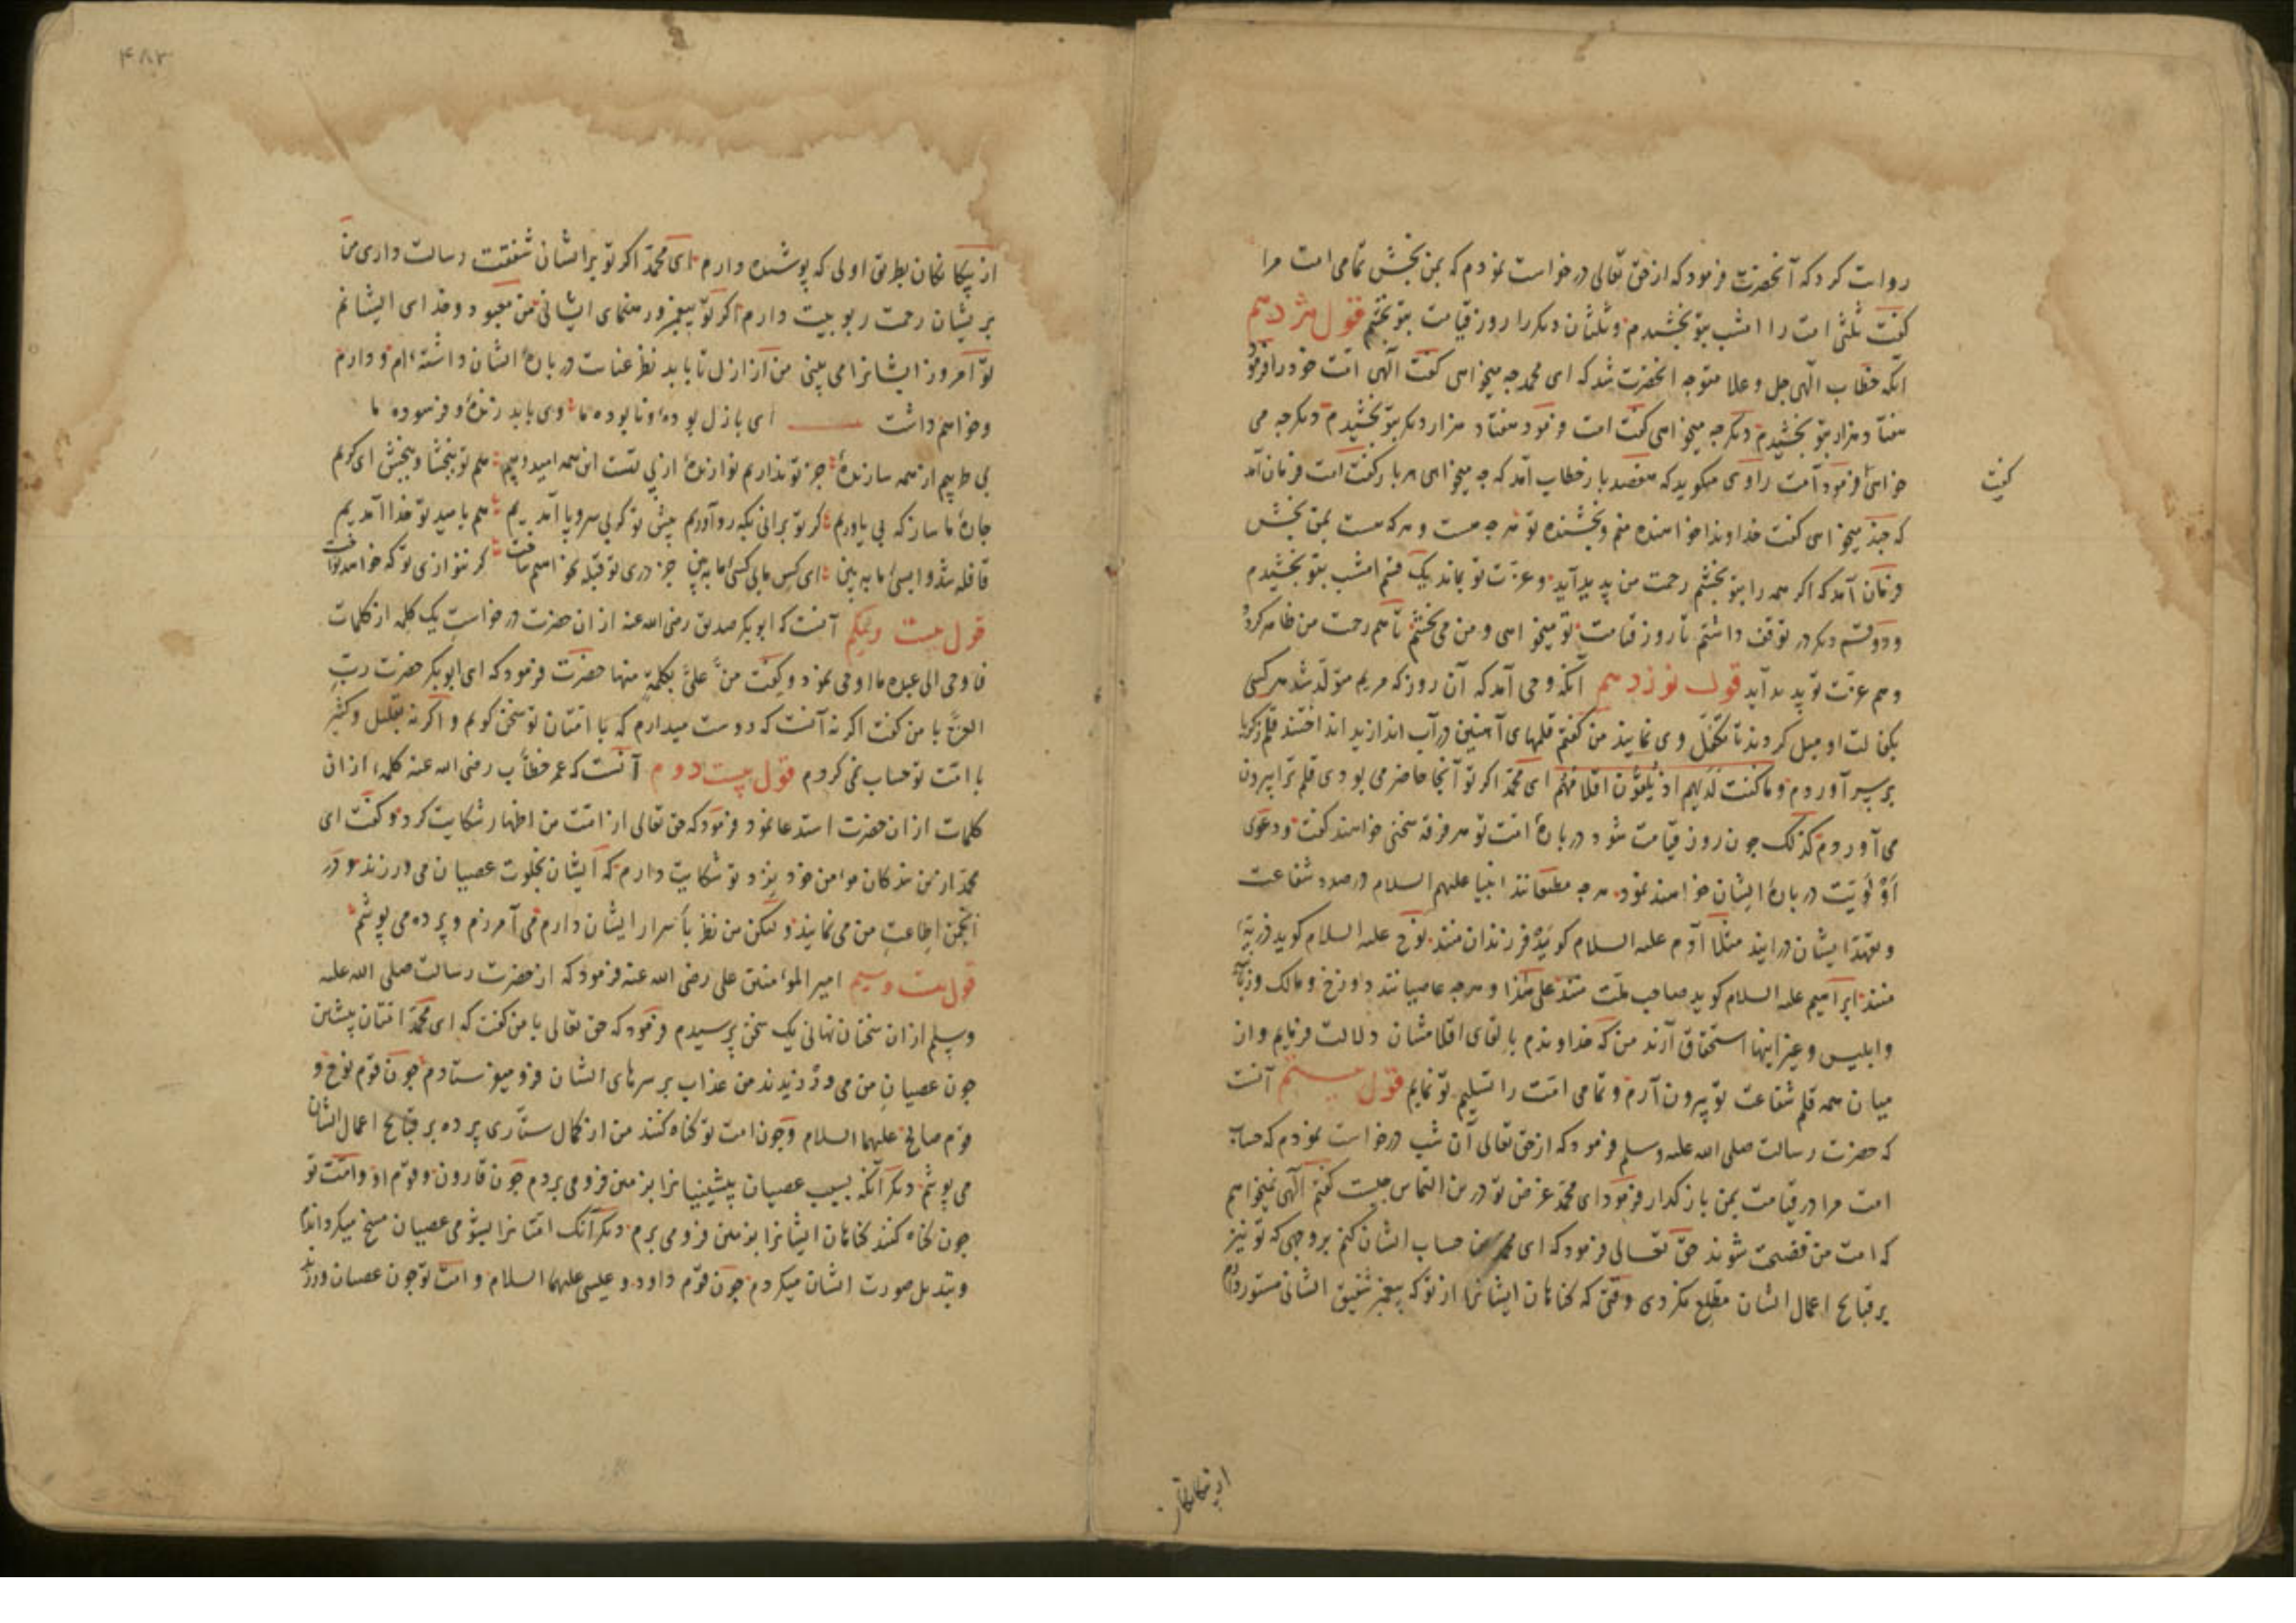 روایت کرد که آنحضرت فرمود که از حق تعالی درخواست نمودم که بمن بخش تمامی امت مرا
گفت ثلثی امت را امشب بتو بخشیدم و ثلثان دیکر را روز قیامت بتو بخشم قول هژدهم
انکه خطاب الهی جل و علا متوجه انحضرت شد که ای محمد چه میخواهی گفت الهی امت خود را فرمود
هفتاد هزار بتو بخشیدم دیکر چه میخواهی گفت امت فرمود هفتاد هزار دیکر بتو بخشیدم دیکر چه می
خواهی فرمود امت راوی میکوید که هفصد بار خطاب آمد که چه میخواهی هر بار گفت امت فرمان آمد
گفت
که چند میخواهی گفت خداوندا خواهنده منم و بخشنده تو هر چه هست و هر که هست بمن بخش
فرمان آمد که اکر همه را بتو بخشم رحمت من پدید آید و عزت تو بماند یک قسم امشب بتو بخشیدم
و دو قسم دیکر در توقف داشتم تا روز قیامت تو میخواهی و من می بخشم تا هم رحمت من ظاهر کردد
و هم عزت تو پدید آید قول نوزدهم آنکه وحی آمد که آن روز که مریم متولد شد هر کسی
بکفالت او میل کردند تا تکفل وی نمایند من کفتم قلمهای آهنین در آب اندازید انداختند قلم زکریا
بر سر آوردم و ما کنت لدیهم اذ یلقون اقلامهم ای محمد اکر تو آنجا حاضر می بودی قلم ترا بیرون
می آوردم کذلک چون روز قیامت شود در باره امت تو هر فرقه سخنی خواهند کفت و دعوی
اولویت در باره ایشان خواهند نمود هر چه مطیعانند انبیا علیهم السلام در صدد شفاعت
و تعهد ایشان در ایند مثلا آدم علیه السلام کوید فرزندان منند نوح علیه السلام کوید ذریه
منند ابراهیم علیه السلام کوید صاحب ملت منند علی هذا و هر چه عاصیانند دوزخ و مالک و زبانیه
و ابلیس و غیر اینها استحقاق آرند من که خداوندم بالقای اقلامشان دلالت فرمایم و از
میان همه قلم شفاعت تو بیرون آرم و تمامی امت را تسلیم تو نمایم قول بیستم آنست
که حضرت رسالت صلی الله علیه وسلم فرمود که از حق تعالی آن شب درخواست نمودم که حساب
امت مرا در قیامت بمن باز کذار فرمود ای محمد غرض تو درین التماس چیست کفتم الهی نمیخواهم
که امت من فضیحت شوند حق تعالی فرمود که ای محمد من حساب ایشان کنم بر وجهی که تو نیز
بر قبایح اعمال ایشان مطلع نکردی وقتی که کناهان ایشانرا از تو که پیغمبر شفیق ایشانی مستور دارم
از بیکانکان
از بیکانکان بطریق اولی که پوشیده دارم ای محمد اکر تو بر ایشان شفقت رسالت داری من
بر یشان رحمت ربوبیت دارم اکر تو پیغمبر و رهنمای ایشانی من معبود و خدای ایشانم
تو امروز ایشانرا می بینی من از ازل تا بابد نظر عنایت در باره ایشان داشته ام و دارم
و خواهم داشت ای بازل بوده و نابوده ما وی بابد زنده و فرسوده ما
بی طربیم از همه سازنده جز تو نداریم نوازنده از پی تست این همه امید و بیم هم تو ببخشا و ببخش ای کریم
چاره ما ساز که بی یاوریم کر تو برانی بکه رو آوریم پیش تو کر بی سر و پا آمدیم هم بامید تو خدا آمدیم
قافله شد واپسی ما ببین ای کس ما بی کسی ما ببین جز در تو قبله نخواهیم ساخت کر ننوازی تو که خواهد نواخت
قول بیست ویکم آنست که ابوبکر صدیق رضی الله عنه ازان حضرت درخواست یک کلمه از کلمات
فاوحی الی عبده ما اوحی نمود و کفت من علی بکلمة منها حضرت فرمود که ای ابوبکر حضرت رب
العزة با من کفت اکر نه آنست که دوست میدارم که با امتان تو سخن کویم و اکر نه بقلیل و کثیر
با امت تو حساب نمی کردم قول بیست دوم آنست که عمر خطاب رضی الله عنه کلمه ازان
کلمات ازان حضرت استدعا نمود فرمود که حق تعالی از امت من اظهار شکایت کرد و کفت ای
محمد از من بندکان مؤمن خود نزد تو شکایت دارم که ایشان بخلوت عصیان می ورزند و در
انجمن اطاعت من می نمایند و لیکن من نظر باسرار ایشان دارم می آمرزم و پرده می پوشم
قول بیست وسیم امیر المؤمنین علی رضی الله عنه فرمود که از حضرت رسالت صلی الله علیه
وسلم ازان سخنان نهانی یک سخن پرسیدم فرمود که حق تعالی با من کفت که ای محمد امتان پیشین
چون عصیان من می ورزیدند من عذاب بر سرهای ایشان فرو میفرستادم چون قوم نوح و
قوم صالح علیهما السلام و چون امت تو کناه کنند من از کمال ستاری پرده بر قبایح اعمال ایشان
می پوشم دیکر آنکه بسبب عصیان پیشینیانرا بزمین فرو می بردم چون قارون و قوم او و امت تو
چون کناه کنند کناهان ایشانرا بزمین فرو می برم دیکر آنک امتانرا بشومی عصیان مسخ میکردانیدم
و تبدیل صورت ایشان میکردم چون قوم داود و عیسی علیهما السلام و امت تو چون عصیان ورزند